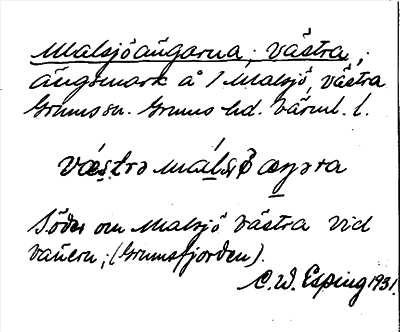 Malsjöängarna, västra,
ängsmark å 1 Malsjö, västra
Grums sn. Grums hd. Värml. l.
Söder om Malsjö västra vid
Vänern, (Grumsfjorden).
C. W. Esping 1931.